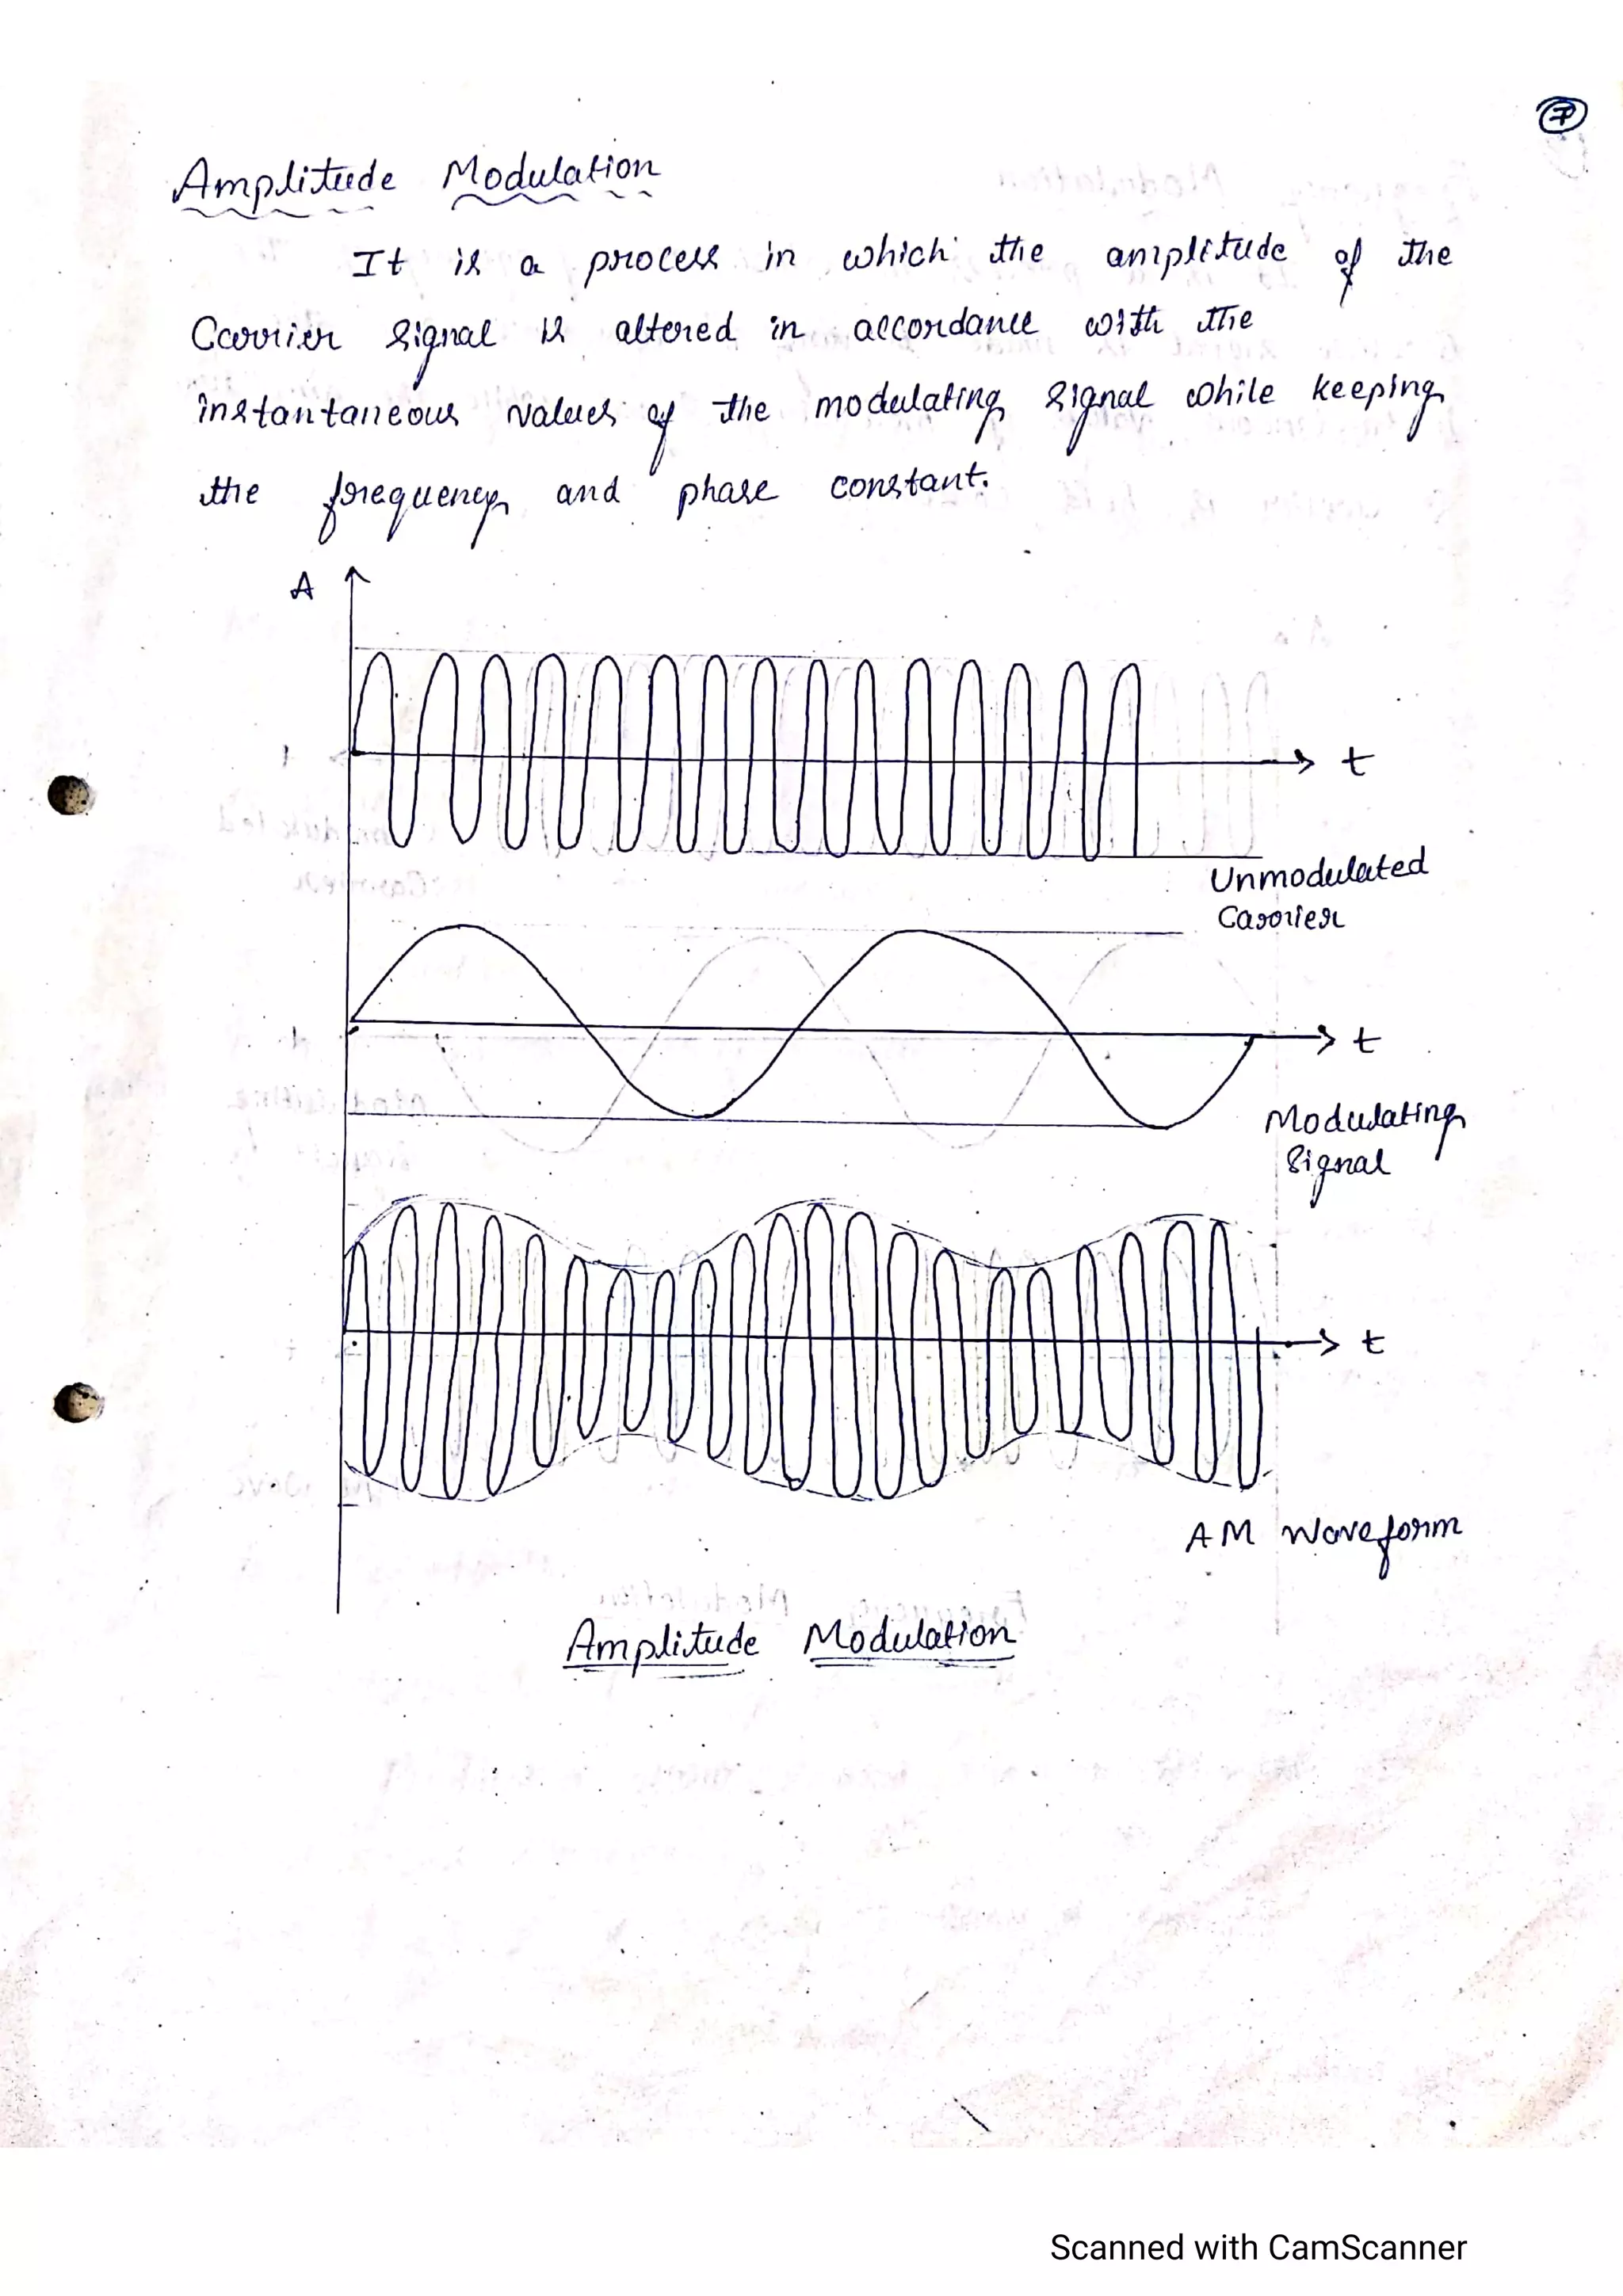 7
Amplitude Modulation
It is a process in which the amplitude of the
Carrier signal is altered in accordance with the
instantaneous values of the modulating signal while keeping
the frequency and phase constant.
A
t
Unmodulated
Carrier
t
Modulating
Signal
t
AM Waveform
Amplitude Modulation
Scanned with CamScanner